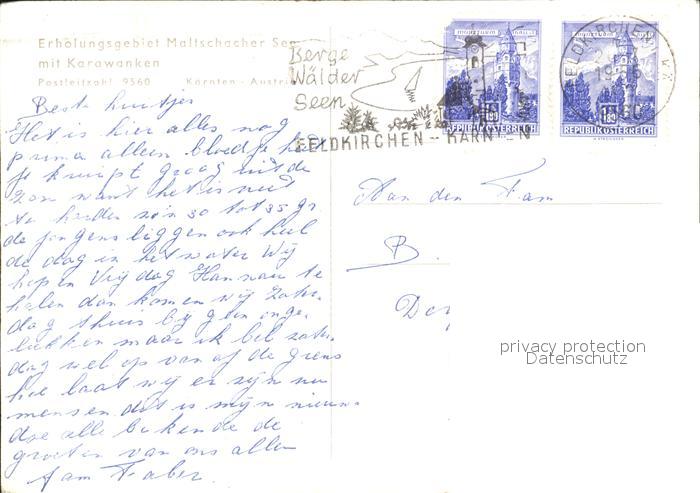 Erholungsgebiet Maltschacher See
mit Karawanken
Postleitzahl 9560 Kärnten - Austria
Berge
Wälder
Seen
FELDKIRCHEN - KÄRNTEN
1.80
REPUBLIK ÖSTERREICH
1.80
REPUBLIK ÖSTERREICH
Beste luitjes
Het is hier alles nog
prima alleen bloedje heet
je kruipt graag uit de
zon want het is niet
te harden zo'n 30 tot 35 gr
de jongens liggen ook heel
de dag in het water Wij
hopen Vrijdag Hannau te
halen dan komen wij Zater
dag thuis bij geen onge
lukken maar ik bel zater
dag wel op van af de grens
hoe laat wij er zijn nu
mensen dit is mijn nieuws
doe alle bekende de
groeten van ons allen
fam Faber.
Aan den Fam
B.
privacy protection
Datenschutz